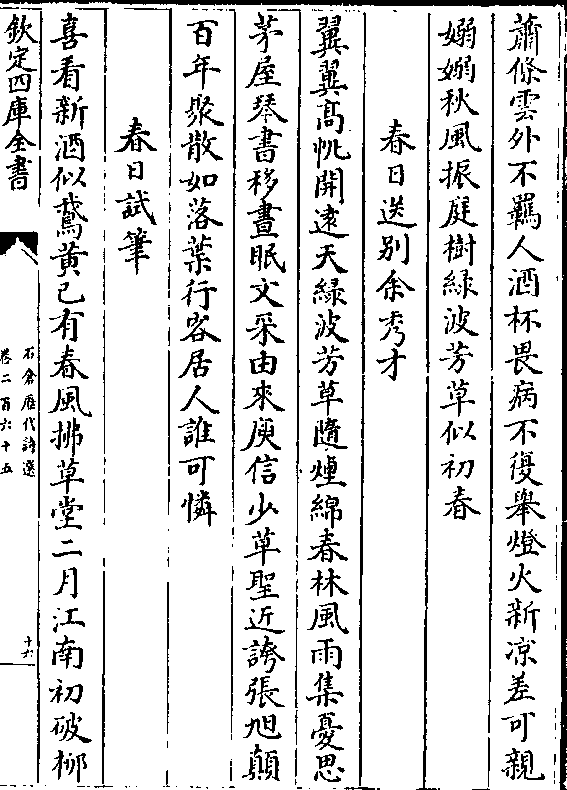 蕭條雲外不羈人酒杯畏病不復舉燈火新凉差可親
嫋嫋秋風振庭樹緑波芳草似初春
春日送别余秀才
翼翼高帆開遠天緑波芳草隨煙綿春林風雨集憂思
茅屋琴書移晝眠文采由來庾信少草聖近誇張旭顛
百年聚散如落葉行客居人誰可憐
春日試筆
喜看新酒似鵞黄已有春風拂草堂二月江南初破柳
欽定四庫全書
石倉歷代詩選
卷二百六十五
十六